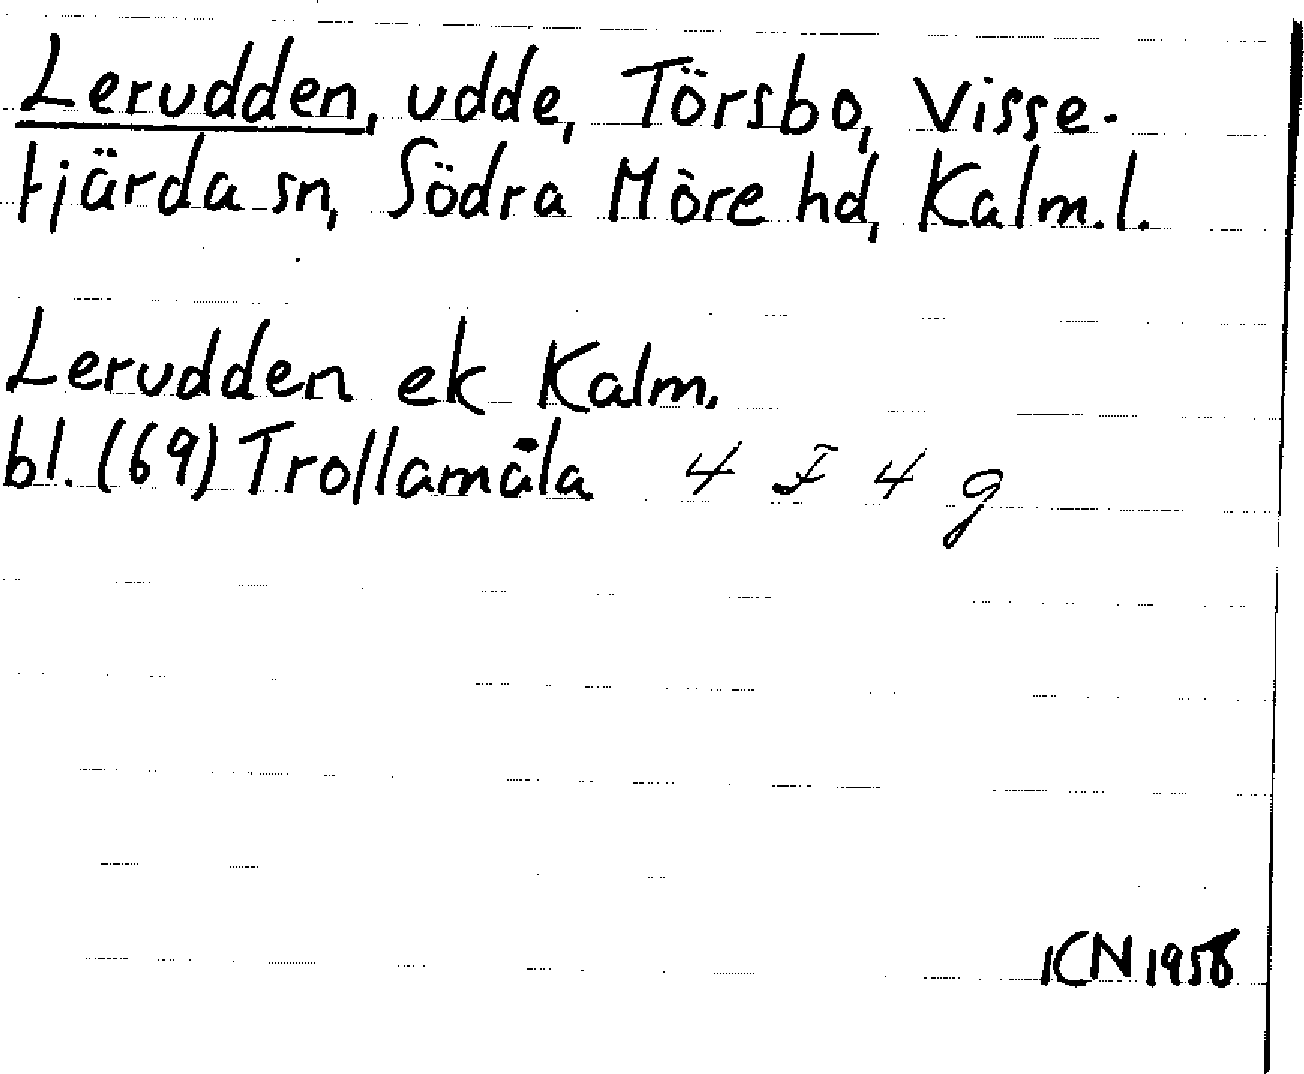 Lerudden, udde, Törsbo, Visse-
fjärda sn, Södra Möre hd, Kalm.l.
Lerudden ek Kalm.
bl. (69) Trollamåla 4 F 4 g
ICN 1958